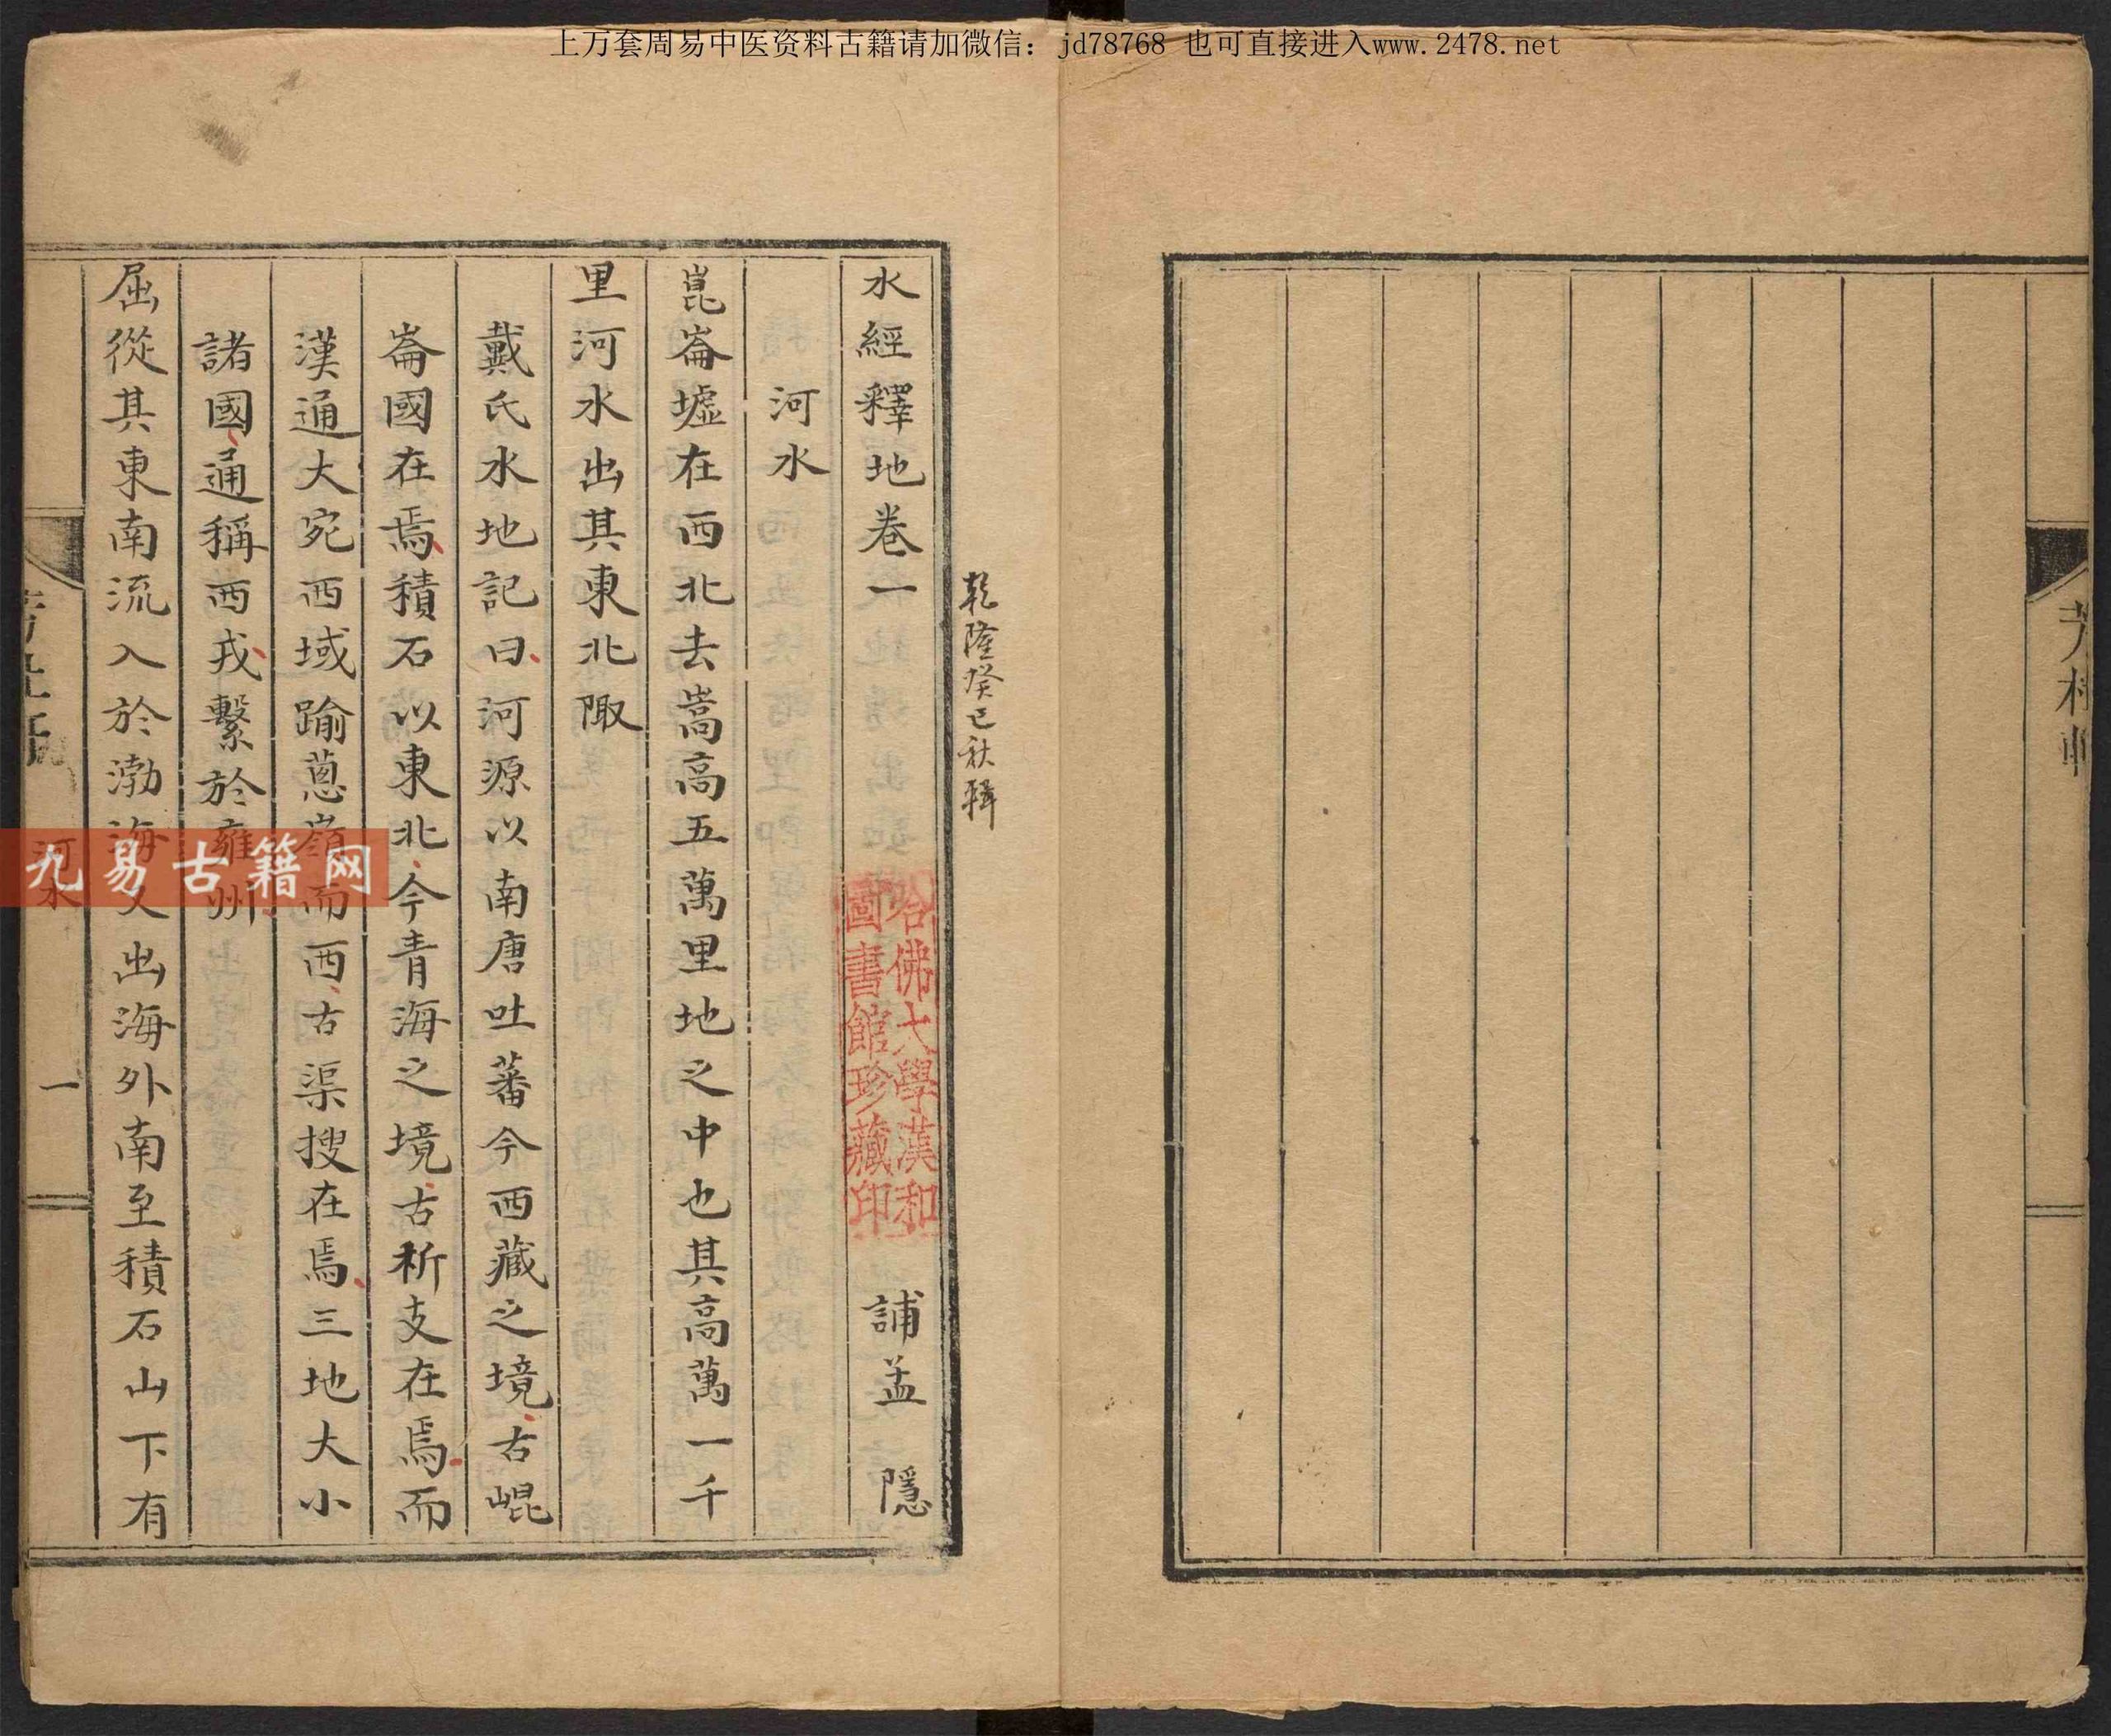 上万套周易中医资料古籍请加微信：jd78768 也可直接进入www.2478.net
乾隆癸巳秋輯
水經釋地卷一 誧孟 隱
哈佛大學漢和
圖書館珍藏印
河水
崑崙墟在西北去嵩高五萬里地之中也其高萬一千
里河水出其東北陬
戴氏水地記曰河源以南唐吐蕃今西藏之境古崐
崙國在焉積石以東北今青海之境古析支在焉而
漢通大宛西域踰蔥嶺而西古渠搜在焉三地大小
諸國通稱西戎繫於雍州
屈從其東南流入於渤海又出海外南至積石山下有
河水 一
九易古籍网